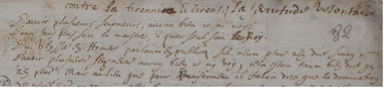 contre la tirannie la servitude volontaire
D'avoir plusieurs seigneurs aucun bien je ni voy
Qu'un sans plus soit le maistre & qu'un seul soit le roy
Homere parlant en publicq s'il n'eust rien plus dict sinon
D'avoir plusieurs seigneurs aucun bien je ni voy cela estoit tant bien dict que
rien plus Mais au lieu que pour raisonner il falloit dire que la domination